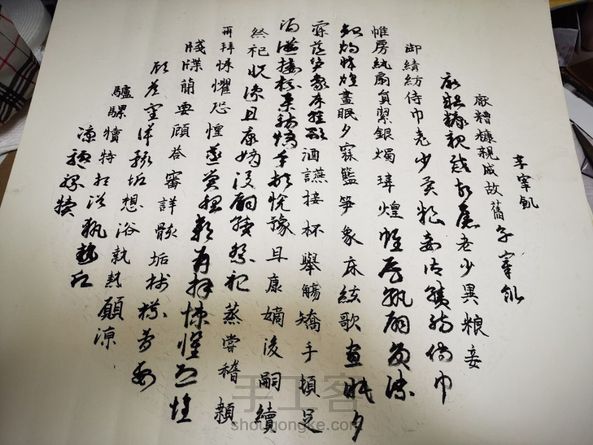 亨宰飢
厭糟糠親戚故舊亨宰飢
厭糟糠親戚故舊老少異粮妾
御績紡侍巾老少異粮妾御績紡侍巾
帷房紈扇員絜銀燭煒煌帷房紈扇員絜
銀燭煒煌晝眠夕寐籃笋象床絃歌晝眠夕
寐籃笋象床絃歌酒讌接杯舉觴矯手頓足
酒讌接杯舉觴矯手頓足悅豫且康嫡後嗣續
祭祀悅豫且康嫡後嗣續祭祀蒸嘗稽顙
再拜悚懼恐惶蒸嘗稽顙再拜悚懼恐惶
牋牒簡要顧答審詳骸垢牋牒簡要
顧答審詳骸垢想浴執熱願涼
驢騾犢特想浴執熱
願涼驢騾犢特
手工客
shougongke.com